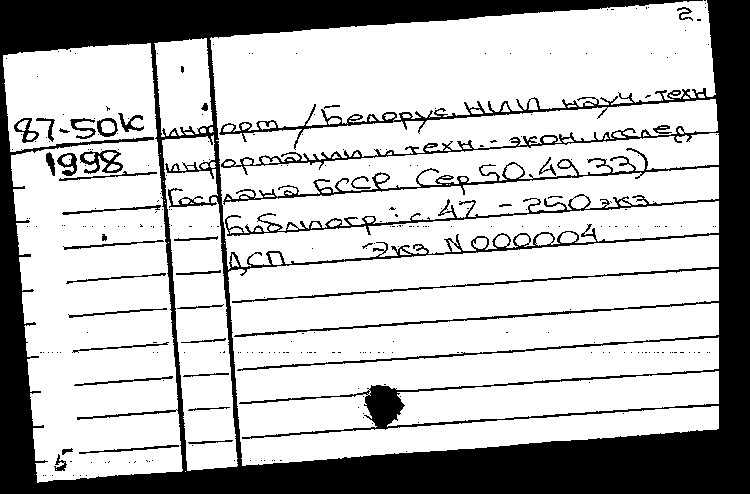 2.
87-50К информ. / Белорус. НИИ науч.-техн.
1998 информации и техн.-экон. исслед.
Госплана БССР. Сер 50.49.33)
Библиогр.: с. 47. - 250 экз.
ДСП. Экз N 000004.
Б